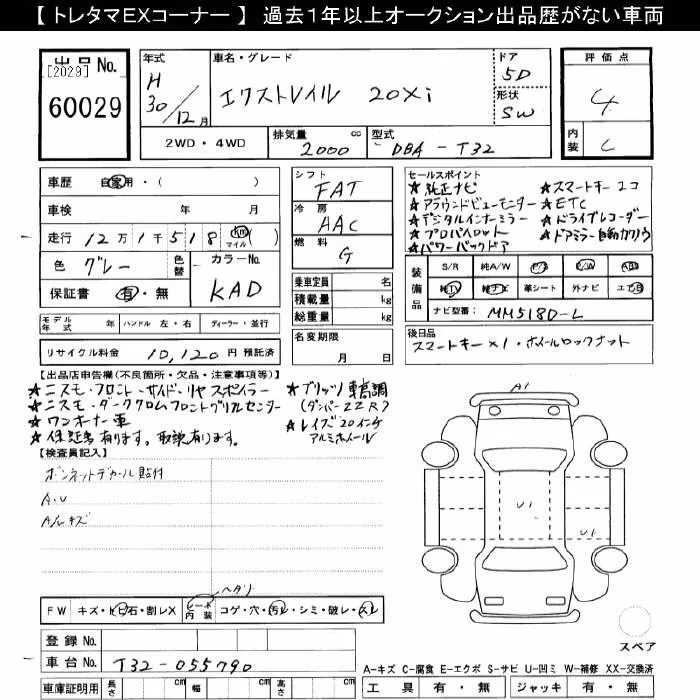 【トレタマEXコーナー】 過去1年以上オークション出品歴がない車両
出品No.
[2029]
60029
年式
H
30/12月
車名・グレード
エクストレイル 20Xi
ドア
5D
形状
SW
評価点
4
内装
C
2WD・4WD
排気量 2000 cc
型式 DBA-T32
車歴 自家用・( )
車検 年 月
走行 12万1千518 km マイル ( )
色 グレー 色替
カラーNo.
KAD
保証書 有・無
モデル年式 年 ハンドル 左・右 ディーラー・並行
リサイクル料金 10,120円 預託済
シフト FAT
冷房 AAC
燃料 G
乗車定員 名
積載量 kg
総重量 kg
名変期限
月 日
セールスポイント
★純正ナビ ★スマートキー2コ
★アラウンドビューモニター ★ETC
★デジタルインナーミラー ★ドライブレコーダー
★プロパイロット ★ドアミラー自動カクノウ
★パワーバックドア
装備品
S/R 純A/W P/S P/W ABS
純TV 純ナビ 革シート 外ナビ エアB
ナビ型番: MM518D-L
後日品
スマートキー×1・ホイールロックナット
【出品店申告欄(不良箇所・欠品・注意事項等)】
★ニスモ・フロント・サイド・リヤスポイラー
★ニスモ・ダーククロムフロントグリルセンター
★ワンオーナー車
★保証書有ります。取説有ります。
★ブリッツ車高調
(ダンパーZZR)
★レイズ20インチ
アルミホイール
【検査員記入】
ボンネットデカール貼付
A.U
A/Wキズ
ヘタリ
FW キズ・ト石・割レX
シート内装 コゲ・穴・汚レ・シミ・破レ・スレ
登録No.
車台No. T32-055790
車庫証明用 長さ cm 幅 cm 高さ cm
A1
U1
U1
スペア
A-キズ C-腐食 E-エクボ S-サビ U-凹ミ W-補修 XX-交換済
工具 有・無 ジャッキ 有・無